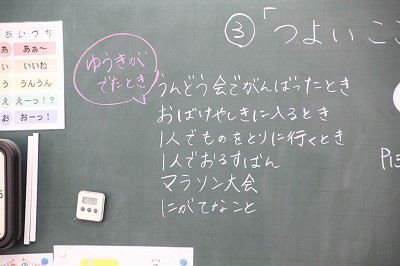 ③「つよいここ
あいづち
あ あぁ〜
い いいね
う うんうん
え えーっ!?
お おーっ!
ゆうきが
でたとき
うんどう会でがんばったとき
おばけやしきに入るとき
1人でものをとりに行くとき
1人でおるすばん
マラソン大会
にがてなこと
P13